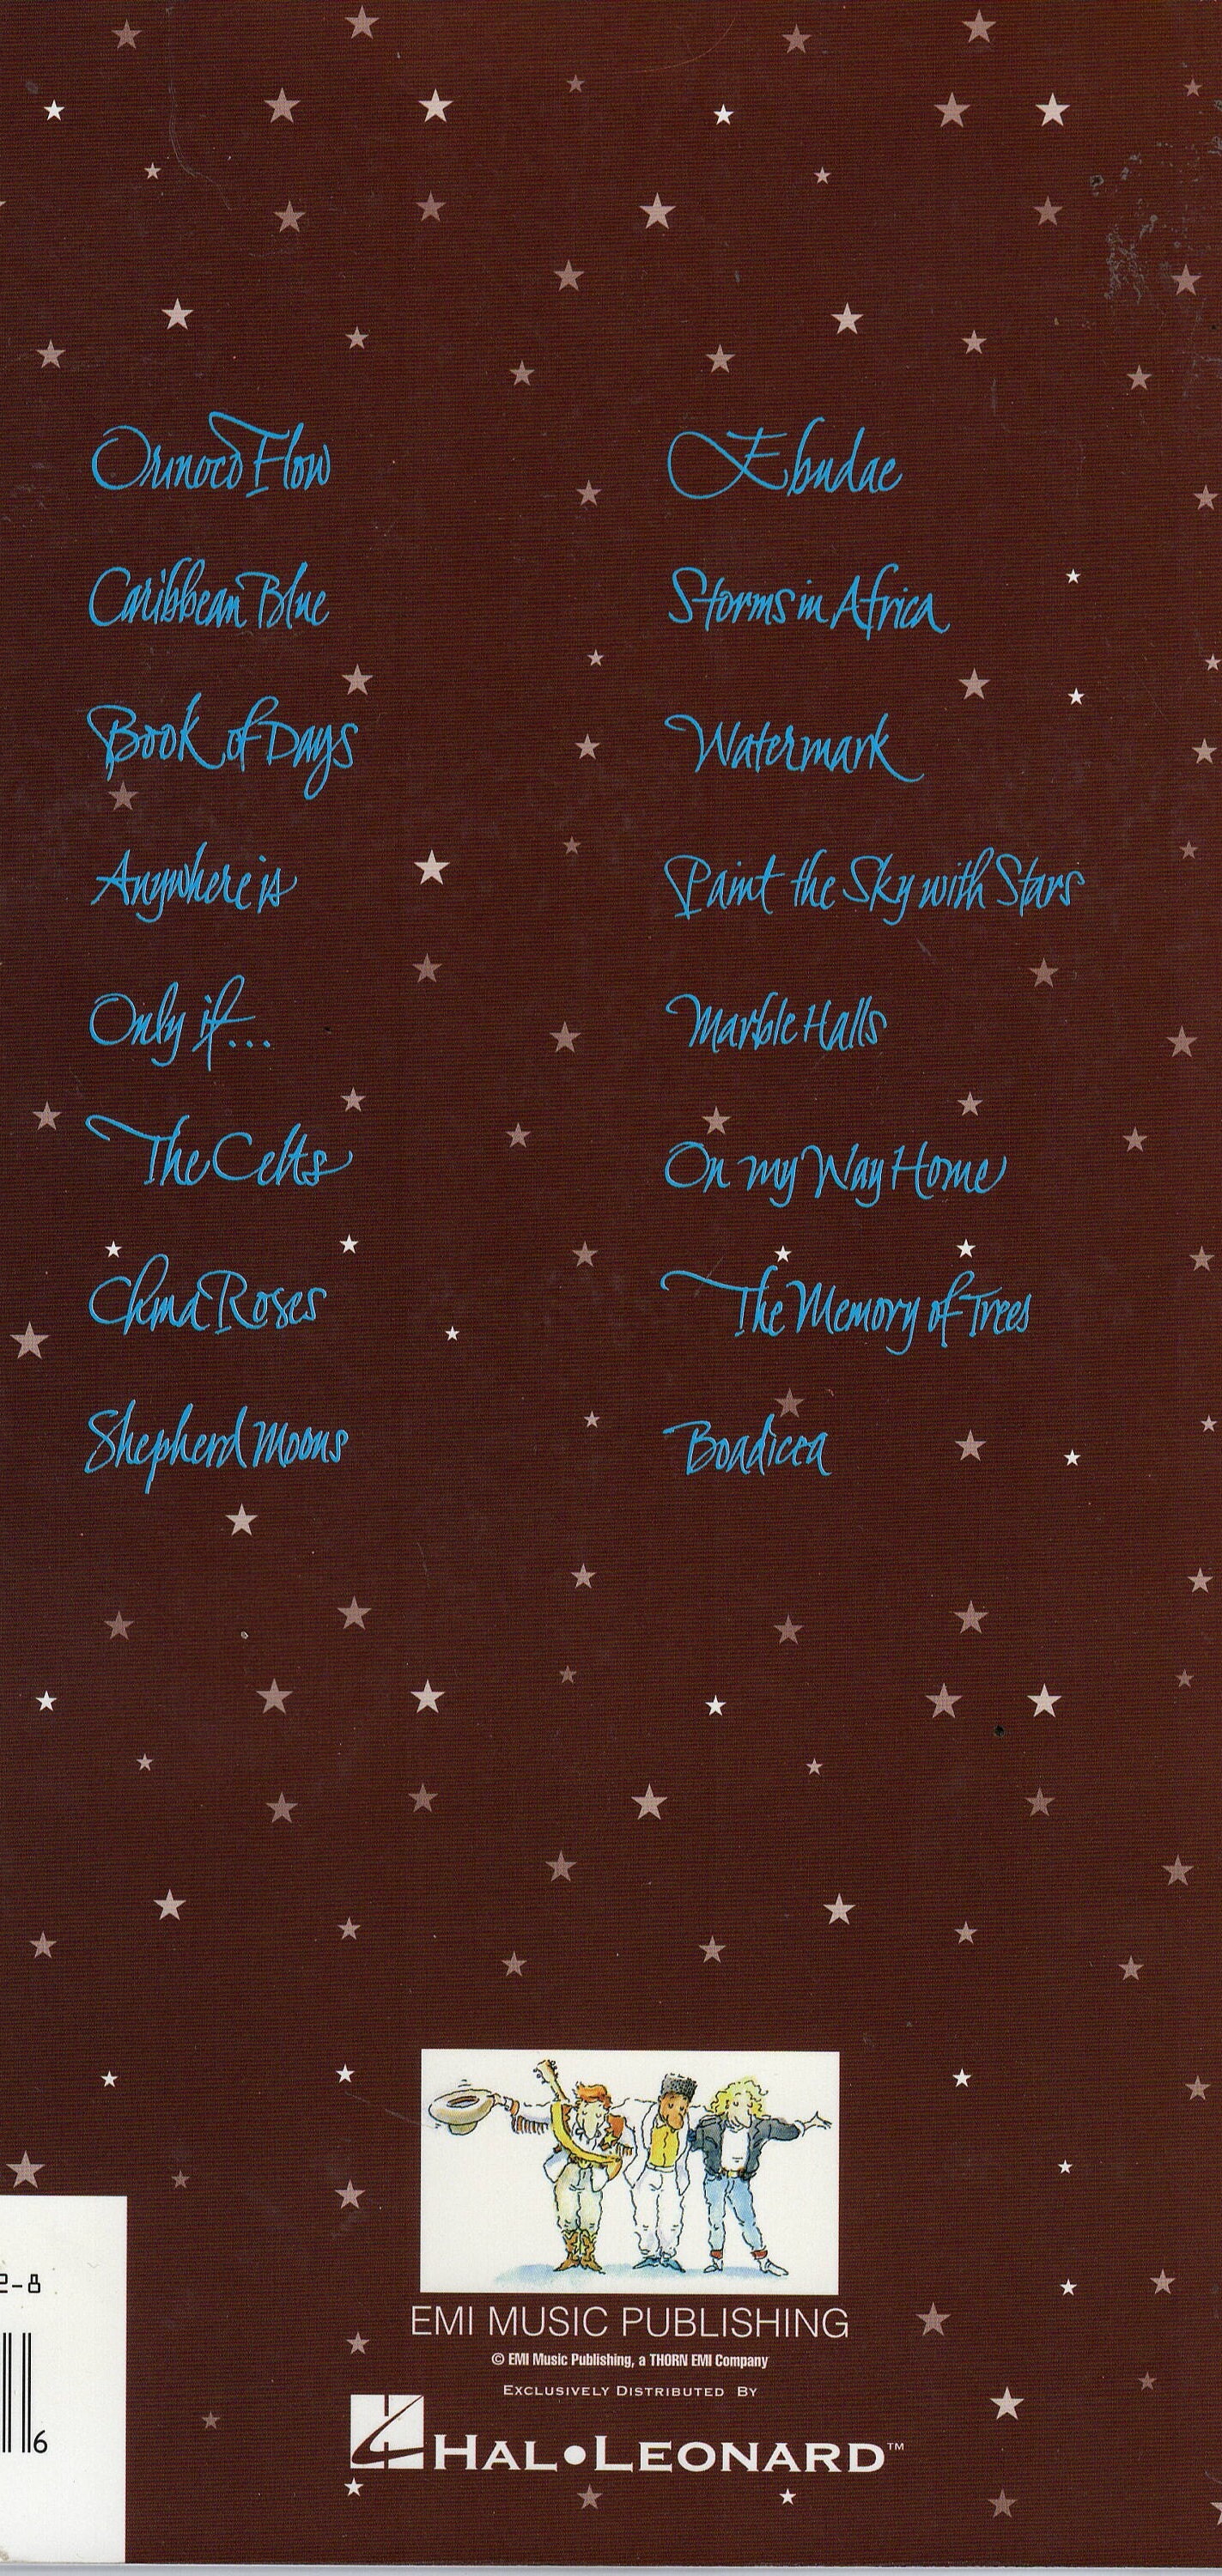 Orinoco Flow
Caribbean Blue
Book of Days
Anywhere is
Only if...
The Celts
China Roses
Shepherd Moons
Ebudae
Storms in Africa
Watermark
Paint the Sky with Stars
Marble Halls
On my Way Home
The Memory of Trees
Boadicea
2-8
6
EMI MUSIC PUBLISHING
© EMI Music Publishing, a THORN EMI Company
EXCLUSIVELY DISTRIBUTED BY
HAL•LEONARD™